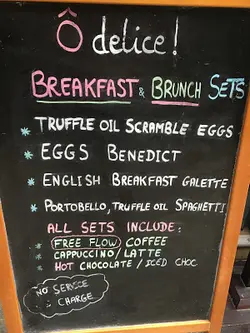 Ô delice!
BREAKFAST & BRUNCH SETS
* TRUFFLE OIL SCRAMBLE EGGS
* EGGS BENEDICT
* ENGLISH BREAKFAST GALETTE
* PORTOBELLO, TRUFFLE OIL SPAGHETTI
ALL SETS INCLUDE:
* (FREE FLOW) COFFEE
* CAPPUCCINO/LATTE
* HOT CHOCOLATE/ICED CHOC
NO SERVICE
CHARGE